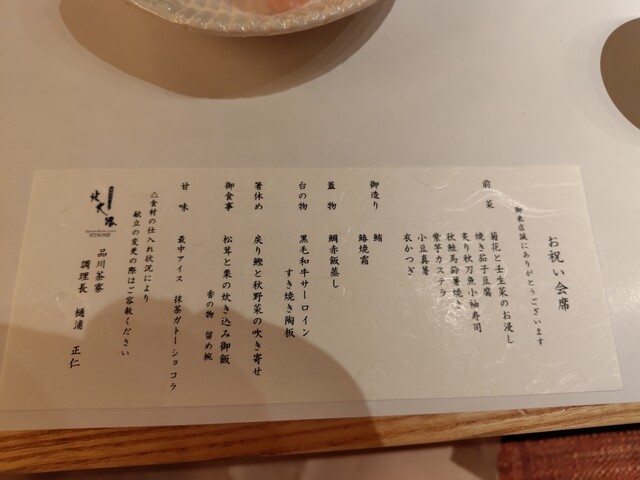 お祝い会席
御来店誠にありがとうございます
前菜
菊花と壬生菜のお浸し
焼き茄子豆腐
炙り秋刀魚小袖寿司
秋鮭馬鈴薯焼き
紫芋カステラ
小豆真薯
衣かつぎ
御造り
鮪
鰆焼霜
蓋物 鯛赤飯蒸し
台の物 黒毛和牛サーロイン
すき焼き陶板
箸休め 戻り鰹と秋野菜の吹き寄せ
御食事 松茸と栗の炊き込み御飯
香の物 留め椀
甘味 最中アイス 抹茶ガトーショコラ
△食材の仕入れ状況により
献立の変更の際はご容赦ください
北大路
品川茶寮
調理長 樋浦 正仁